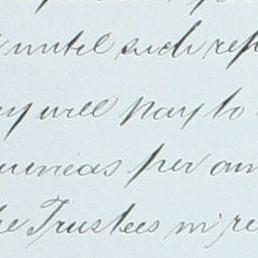 until such rep
y will pay to
uineas per an
he Trustees in re